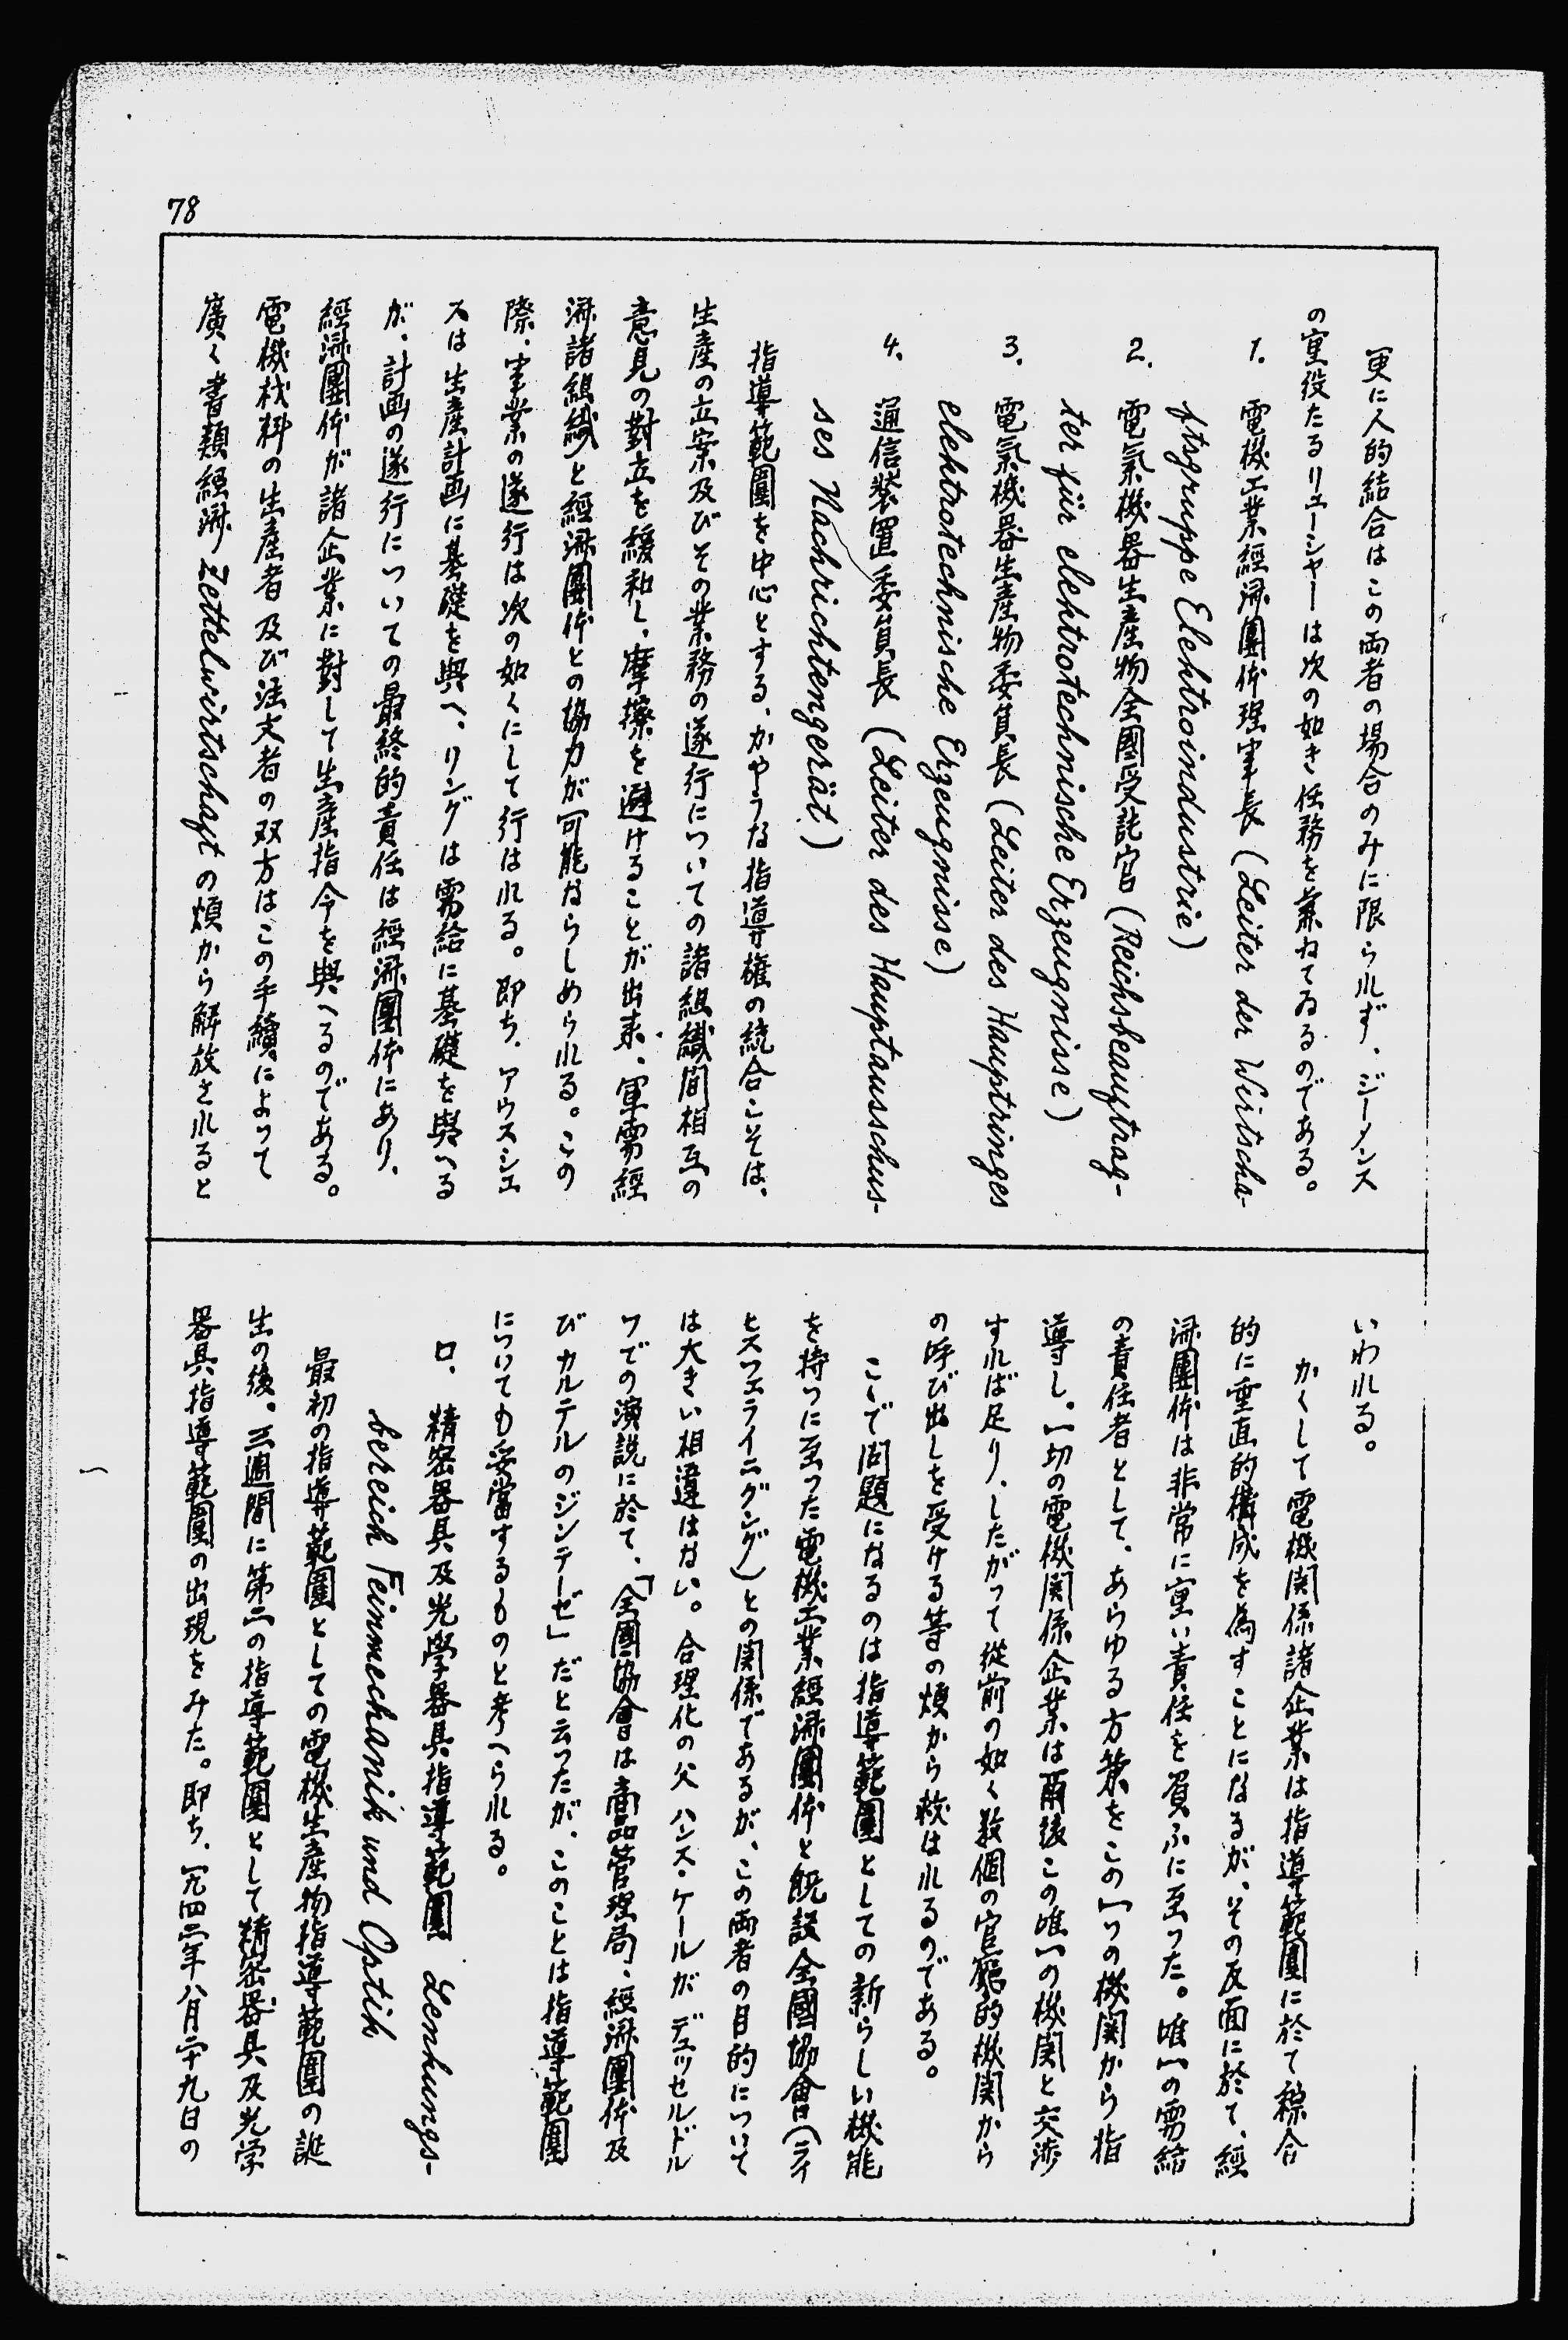 78
更に人的結合はこの両者の場合のみに限られず、ジーメンス
の重役たるリューシャーは次の如き任務を兼ねてゐるのである。
1. 電機工業經済團体理事長(Leiter der Wirtscha-
ftsgruppe Elektroindustrie)
2. 電氣機器生産物全國受託官(Reichsbeauftrag-
ter für elektrotechnische Erzeugnisse)
3. 電氣機器生産物委員長(Leiter des Hauptringes
elektrotechnische Erzeugnisse)
4. 通信裝置委員長(Leiter des Hauptausschus-
ses Nachrichtengerät)
指導範圍を中心とする、かやうな指導權の統合こそは、
生産の立案及びその業務の遂行についての諸組織間相互の
意見の對立を緩和し、摩擦を避けることが出来、軍需經
済諸組織と經済團体との協力が可能ならしめられる。この
際、事業の遂行は次の如くにして行はれる。即ち、アウスシェ
スは生産計画に基礎を與へ、リングは需給に基礎を與へる
が、計画の遂行についての最終的責任は經済團体にあり、
經済團体が諸企業に對して生産指令を與へるのである。
電機材料の生産者及び注文者の双方はこの手續によって
廣く書類經済 Zettelwirtschaft の煩から解放されると
いわれる。
かくして電機関係諸企業は指導範圍に於て綜合
的に垂直的構成を為すことになるが、その反面に於て、經
済團体は非常に重い責任を負ふに至った。唯一の需給
の責任者として、あらゆる方策をこの一つの機関から指
導し。一切の電機関係企業は爾後この唯一の機関と交渉
すれば足り、したがって從前の如く数個の官廳的機関から
の呼び出しを受ける等の煩から救はれるのである。
こゝで問題になるのは指導範圍としての新らしい機能
を持つに至った電機工業經済團体と既設全國協會(ライ
ヒスフェライニグング)との関係であるが、この両者の目的について
は大きい相違はない。合理化の父ハンス・ケールがデュッセルドル
フでの演説に於て、「全國協會は商品管理局、經済團体及
びカルテルのジンテーゼ」だと云ったが、このことは指導範圍
についても妥當するものと考へられる。
ロ. 精密器具及光學器具指導範圍 Lenkungs-
bereich Feinmechanik und Optik
最初の指導範圍としての電機生産物指導範圍の誕
生の後。三週間に第二の指導範圍として精密器具及光学
器具指導範圍の出現をみた。即ち、一九四二年八月二十九日の